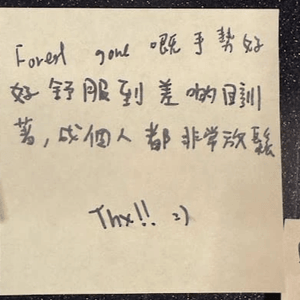 Forest gone 嘅手勢好
好舒服到差啲瞓
著，成個人都非常放鬆
Thx!! =)